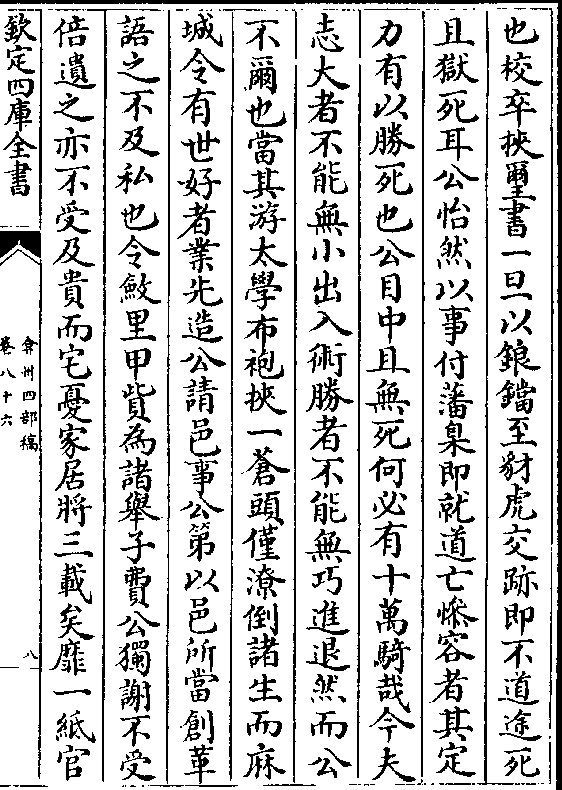 也校卒挾璽書一旦以鋃鐺至豺虎交跡即不道途死
且獄死耳公怡然以事付藩臬即就道亡慘容者其定
力有以勝死也公目中且無死何必有十萬騎哉今夫
志大者不能無小出入術勝者不能無巧進退然而公
不爾也當其游太學布袍挾一蒼頭僅潦倒諸生而麻
城令有世好者業先造公請邑事公第以邑所當創革
語之不及私也令斂里甲貲為諸舉子費公獨謝不受
倍遺之亦不受及貴而宅憂家居將三載矣靡一紙官
欽定四庫全書
弇州四部稿
卷八十六
八